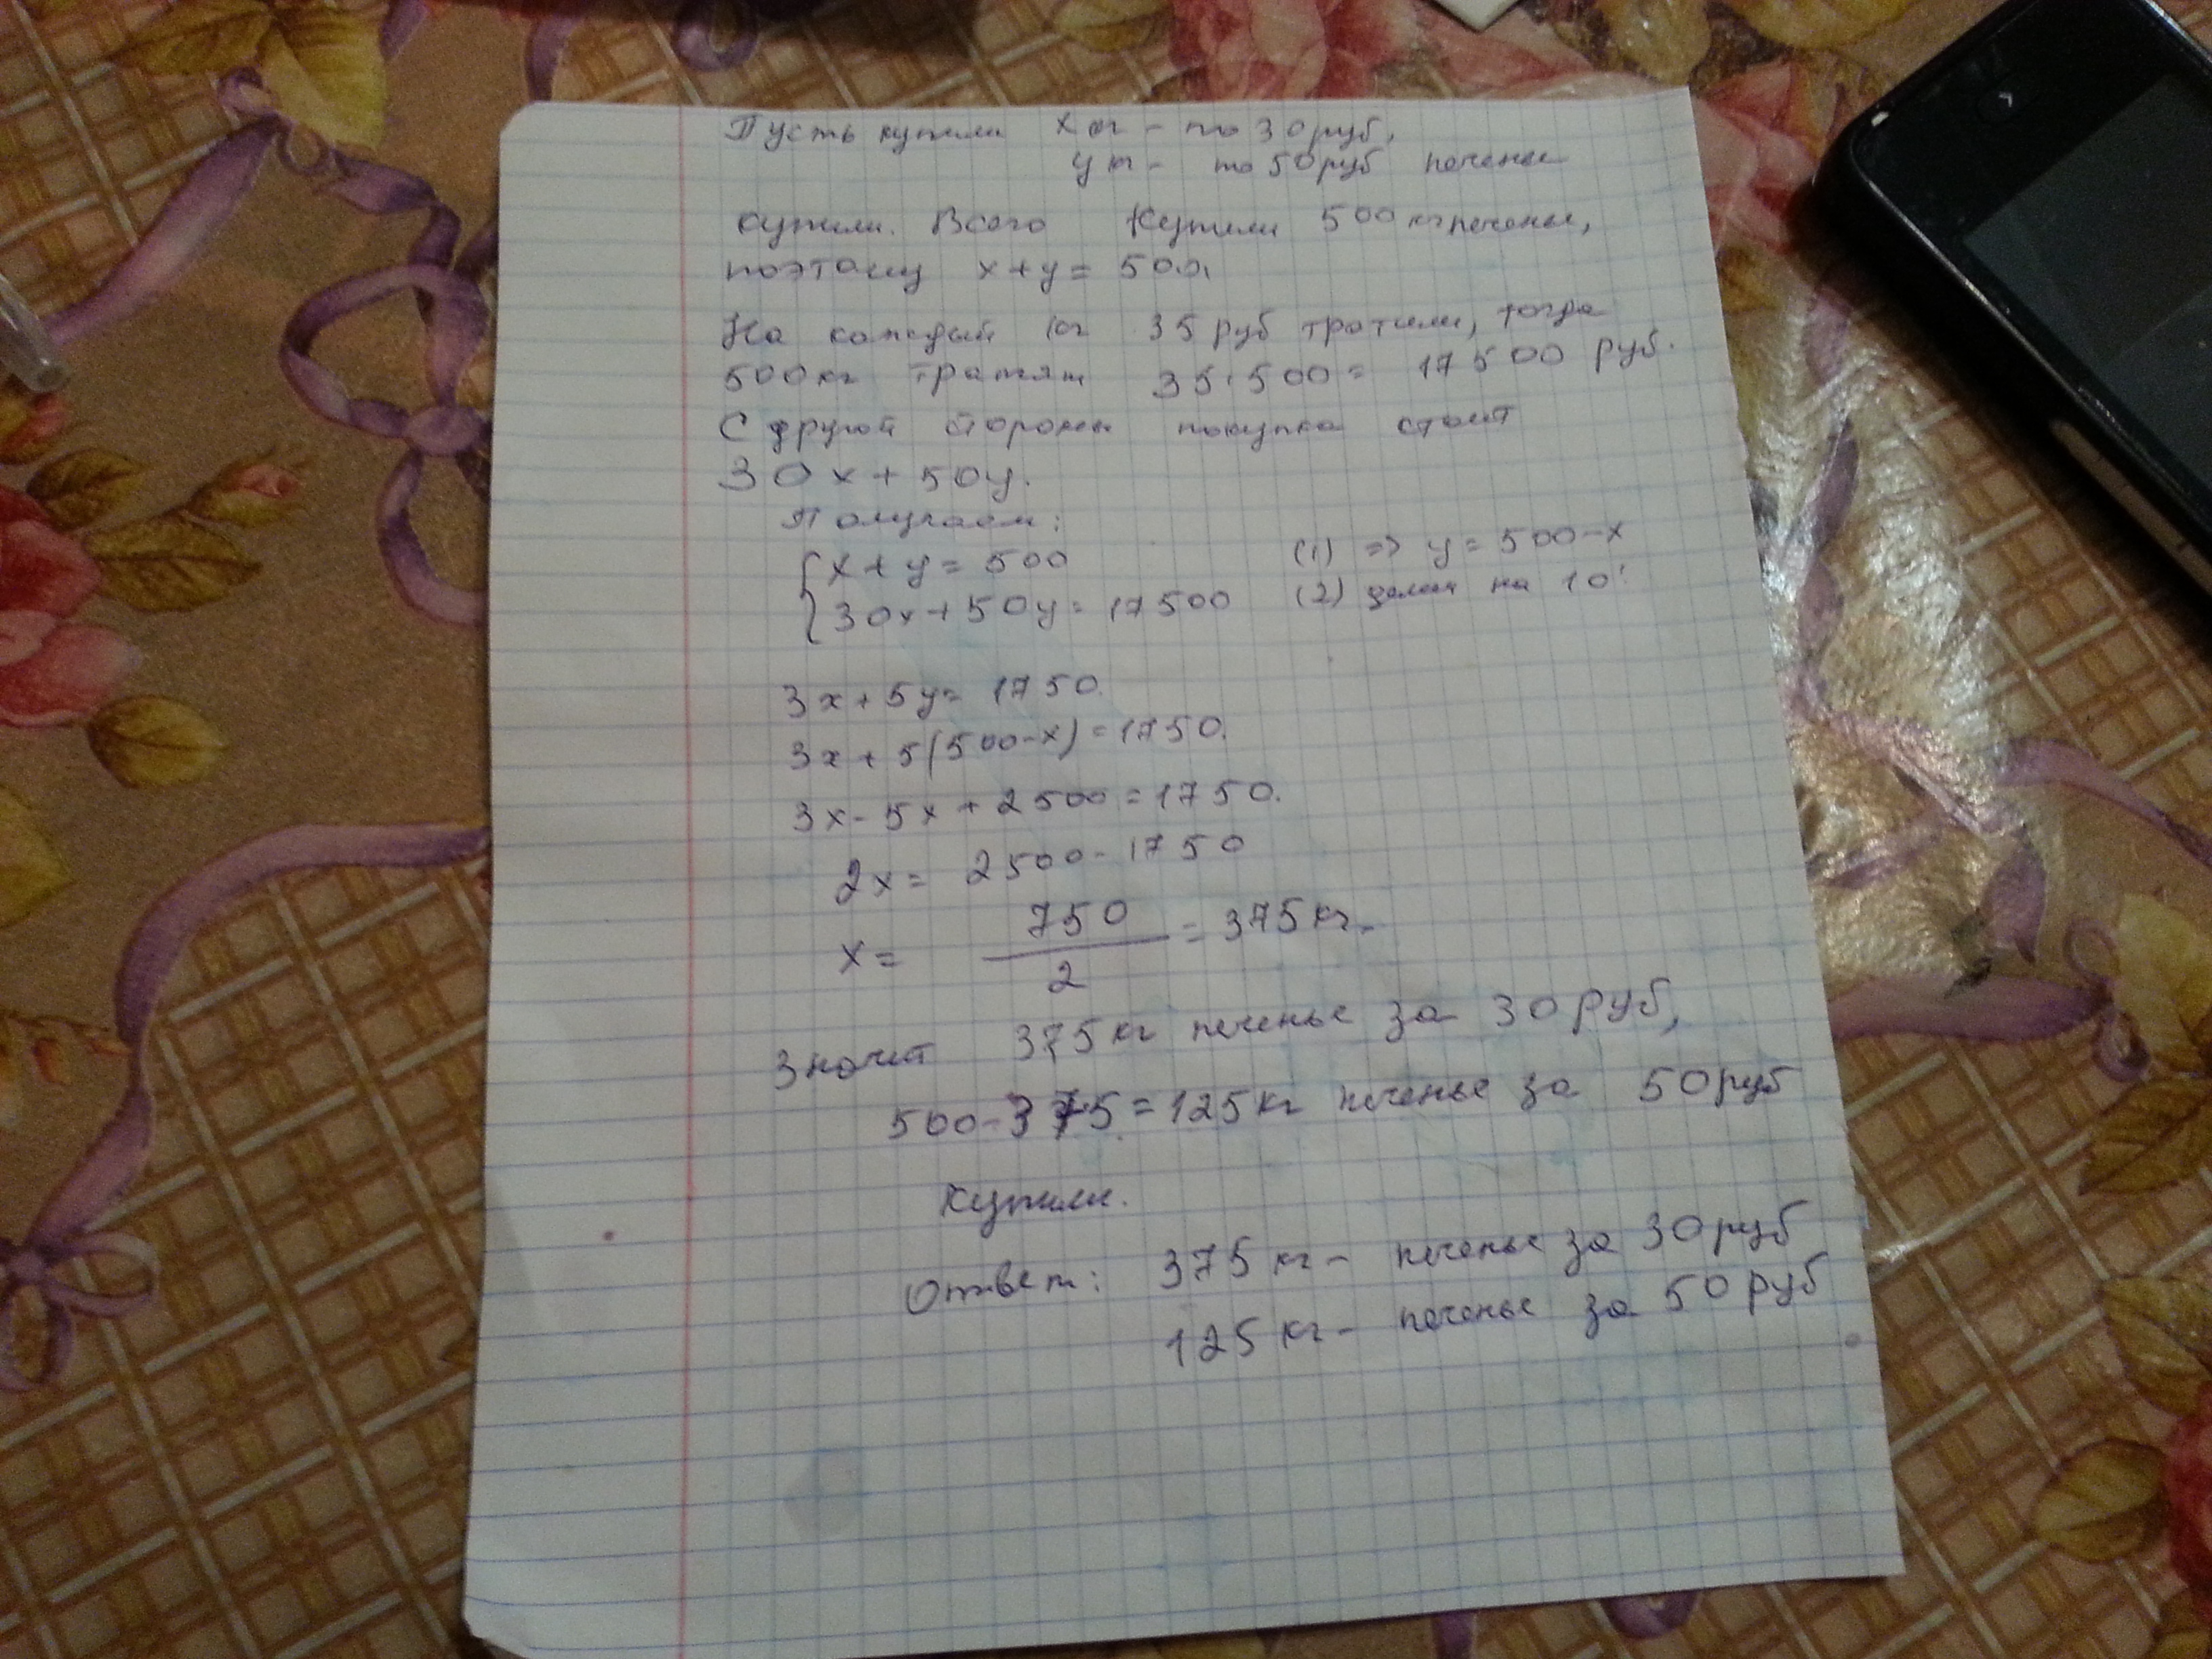 Пусть купили x кг - по 30 руб,
y кг - по 50 руб печенье
купили. Всего купили 500 кг печенье,
поэтому x+y= 500.
На каждый кг 35 руб тратили, тогда
500кг тратят 35·500= 17500 руб.
С другой стороны покупка стоит
30x+50y.
Получаем:
{x+y=500 (1) => y=500-x
{30x+50y=17500 (2) делем на 10:
3x+5y=1750.
3x+5(500-x)=1750.
3x-5x+2500=1750.
2x= 2500-1750
x= 750/2 = 375кг.
Значит 375кг печенье за 30 руб,
500-375=125кг печенье за 50руб
купили.
Ответ: 375 кг - печенье за 30 руб
125 кг - печенье за 50 руб